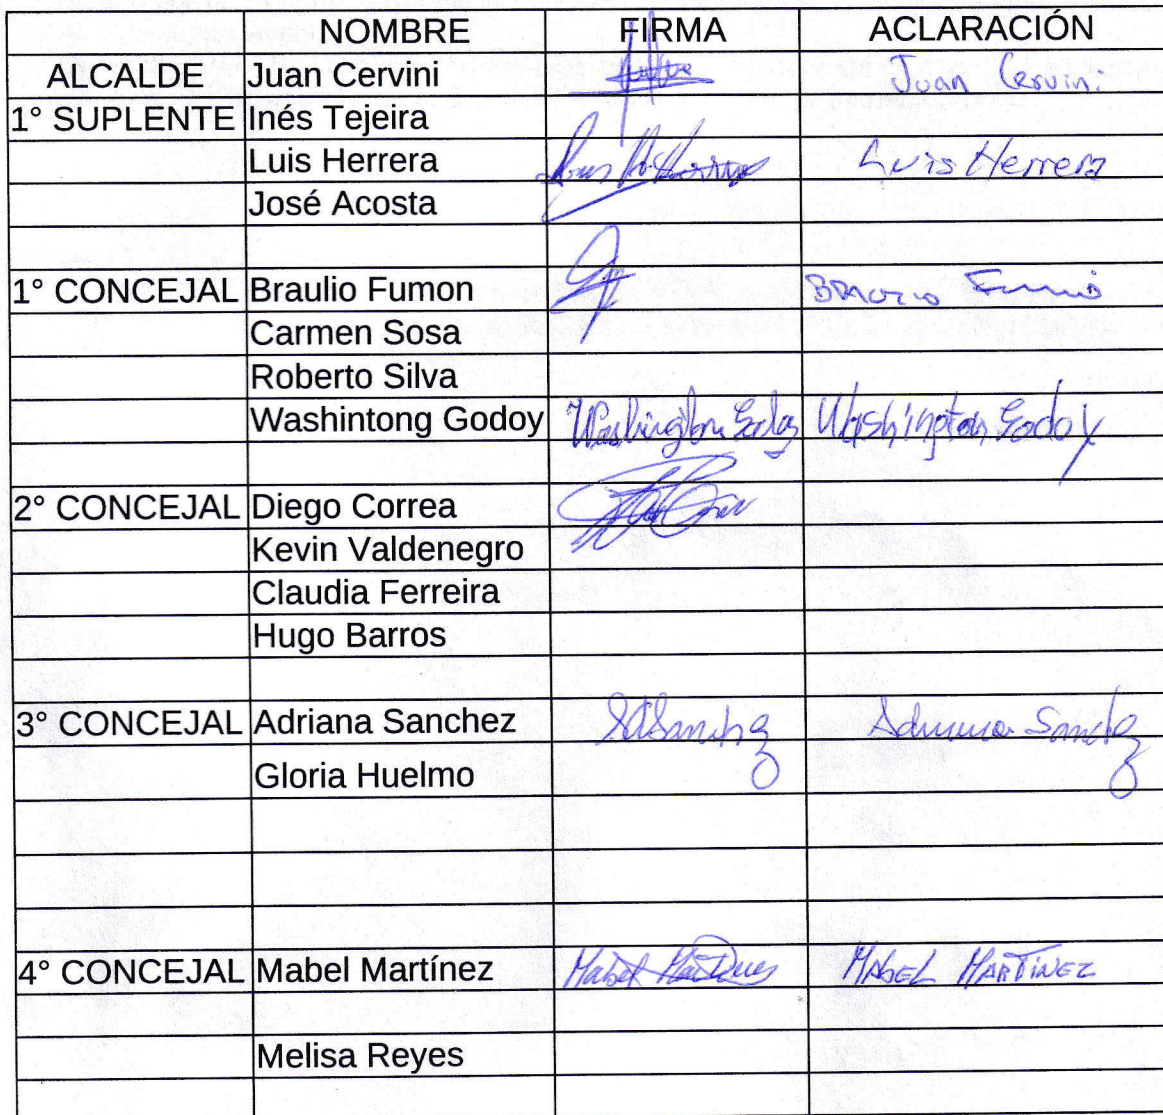 NOMBRE FIRMA ACLARACIÓN
ALCALDE Juan Cervini Juan Cervini
1° SUPLENTE Inés Tejeira
Luis Herrera Luis Herrera
José Acosta
1° CONCEJAL Braulio Fumon Braulio
Carmen Sosa
Roberto Silva
Washintong Godoy Washington Godoy Washington Godoy
2° CONCEJAL Diego Correa
Kevin Valdenegro
Claudia Ferreira
Hugo Barros
3° CONCEJAL Adriana Sanchez Adriana Sanchez
Gloria Huelmo
4° CONCEJAL Mabel Martínez Mabel Martinez MABEL MARTINEZ
Melisa Reyes